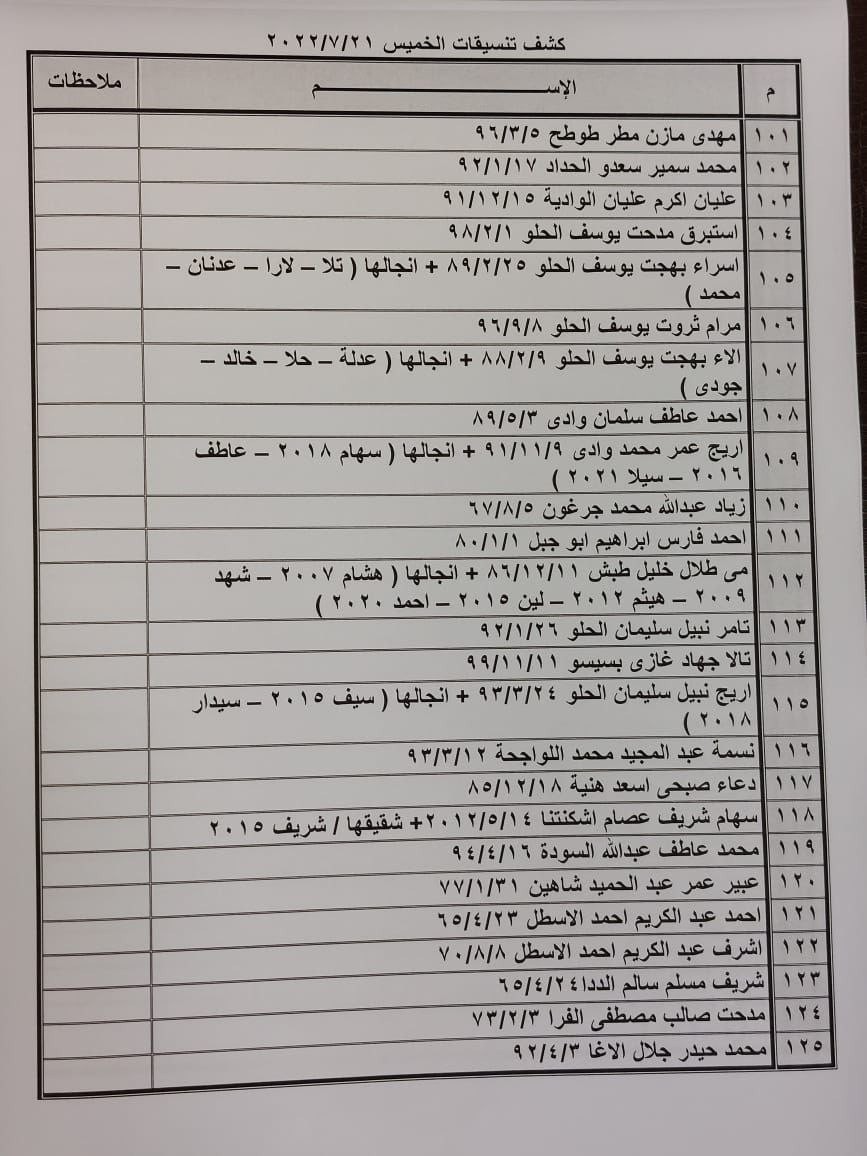 كشف تنسيقات الخميس ٢٠٢٢/٧/٢١
م الإســــــــــم ملاحظات
١٠١ مهدى مازن مطر طوطح ٩٦/٣/٥
١٠٢ محمد سمير سعدو الحداد ٩٢/١/١٧
١٠٣ عليان اكرم عليان الوادية ٩١/١٢/١٥
١٠٤ استبرق مدحت يوسف الحلو ٩٨/٢/١
١٠٥ اسراء بهجت يوسف الحلو ٨٩/٢/٢٥ + انجالها ( تلا – لارا – عدنان –
محمد )
١٠٦ مرام ثروت يوسف الحلو ٩٦/٩/٨
١٠٧ الاء بهجت يوسف الحلو ٨٨/٢/٩ + انجالها ( عدلة – حلا – خالد –
جودى )
١٠٨ احمد عاطف سلمان وادى ٨٩/٥/٣
١٠٩ اريج عمر محمد وادى ٩١/١١/٩ + انجالها ( سهام ٢٠١٨ – عاطف
٢٠١٦ – سيلا ٢٠٢١ )
١١٠ زياد عبدالله محمد جرغون ٦٧/٨/٥
١١١ احمد فارس ابراهيم ابو جبل ٨٠/١/١
١١٢ مى طلال خليل طبش ٨٦/١٢/١١ + انجالها ( هشام ٢٠٠٧ – شهد
٢٠٠٩ – هيثم ٢٠١٢ – لين ٢٠١٥ – احمد ٢٠٢٠ )
١١٣ تامر نبيل سليمان الحلو ٩٢/١/٢٦
١١٤ تالا جهاد غازى بسيسو ٩٩/١١/١١
١١٥ اريج نبيل سليمان الحلو ٩٣/٣/٢٤ + انجالها ( سيف ٢٠١٥ – سيدار
٢٠١٨ )
١١٦ نسمة عبد المجيد محمد اللواجحة ٩٣/٣/١٢
١١٧ دعاء صبحى اسعد هنية ٨٥/١٢/١٨
١١٨ سهام شريف عصام اشكنتنا ٢٠١٢/٥/١٤+ شقيقها / شريف ٢٠١٥
١١٩ محمد عاطف عبدالله السودة ٩٤/٤/١٦
١٢٠ عبير عمر عبد الحميد شاهين ٧٧/١/٣١
١٢١ احمد عبد الكريم احمد الاسطل ٦٥/٤/٢٣
١٢٢ اشرف عبد الكريم احمد الاسطل ٧٠/٨/٨
١٢٣ شريف مسلم سالم الددا٦٥/٤/٢٤
١٢٤ مدحت صالب مصطفى الفرا ٧٣/٢/٣
١٢٥ محمد حيدر جلال الاغا ٩٢/٤/٣